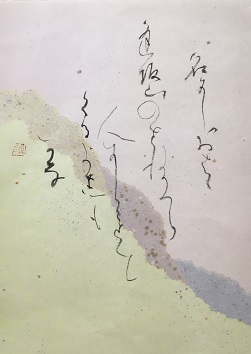 名にしおはゝ
逢坂山のさねかつら
人にしられて
くるよしも
かな